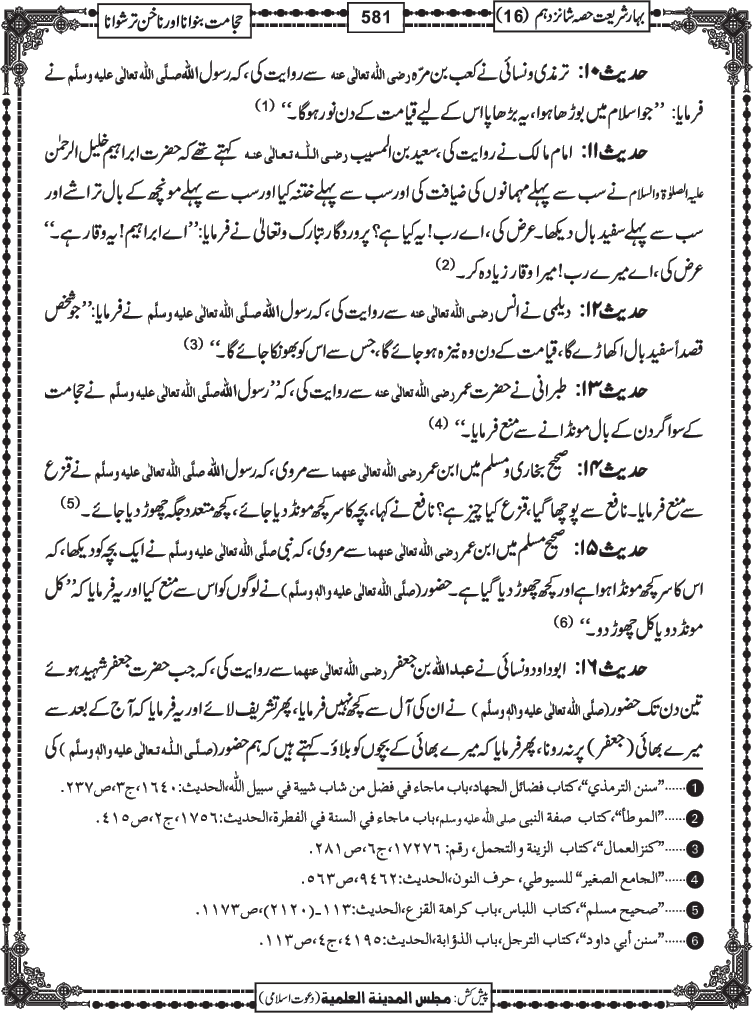 بہار شریعت حصہ شانزدہم (16)
581
حجامت بنوانا اور ناخن ترشوانا
حدیث ۱۰: ترمذی و نسائی نے کعب بن مرّہ رضی اللہ تعالٰی عنہ سے روایت کی، کہ رسول اللہ صلَّی اللہ تعالٰی علیہ وسلَّم نے
فرمایا: ’’جو اسلام میں بوڑھا ہوا، یہ بڑھاپا اس کے لیے قیامت کے دن نور ہوگا۔‘‘ (1)
حدیث ۱۱: امام مالک نے روایت کی، سعید بن المسیب رضی اللہ تعالٰی عنہ کہتے تھے کہ حضرت ابراہیم خلیل الرحمٰن
علیہ الصلوٰۃ والسلام نے سب سے پہلے مہمانوں کی ضیافت کی اور سب سے پہلے ختنہ کیا اور سب سے پہلے مونچھ کے بال تراشے اور
سب سے پہلے سفید بال دیکھا۔ عرض کی، اے رب! یہ کیا ہے؟ پروردگار تبارک وتعالیٰ نے فرمایا: ’’اے ابراہیم! یہ وقار ہے۔‘‘
عرض کی، اے میرے رب! میرا وقار زیادہ کر۔ (2)
حدیث ۱۲: دیلمی نے انس رضی اللہ تعالٰی عنہ سے روایت کی، کہ رسول اللہ صلَّی اللہ تعالٰی علیہ وسلَّم نے فرمایا: ’’جو شخص
قصداً سفید بال اکھاڑے گا، قیامت کے دن وہ نیزہ ہو جائے گا، جس سے اس کو بھونکا جائے گا۔‘‘ (3)
حدیث ۱۳: طبرانی نے حضرت عمر رضی اللہ تعالٰی عنہ سے روایت کی، کہ ’’رسول اللہ صلَّی اللہ تعالٰی علیہ وسلَّم نے حجامت
کے سوا گردن کے بال مونڈانے سے منع فرمایا۔‘‘ (4)
حدیث ۱۴: صحیح بخاری و مسلم میں ابن عمر رضی اللہ تعالٰی عنہما سے مروی، کہ رسول اللہ صلَّی اللہ تعالٰی علیہ وسلَّم نے قزع
سے منع فرمایا۔ نافع سے پوچھا گیا، قزع کیا چیز ہے؟ نافع نے کہا، بچہ کا سر کچھ مونڈ دیا جائے، کچھ متعدد جگہ چھوڑ دیا جائے۔ (5)
حدیث ۱۵: صحیح مسلم میں ابن عمر رضی اللہ تعالٰی عنہما سے مروی، کہ نبی صلَّی اللہ تعالٰی علیہ وسلَّم نے ایک بچہ کو دیکھا، کہ
اس کا سر کچھ مونڈا ہوا ہے اور کچھ چھوڑ دیا گیا ہے۔ حضور (صلَّی اللہ تعالٰی علیہ والہٖ وسلَّم) نے لوگوں کو اس سے منع کیا اور یہ فرمایا کہ ’’کل
مونڈ دو یا کل چھوڑ دو۔‘‘ (6)
حدیث ۱۶: ابو داود و نسائی نے عبد اللہ بن جعفر رضی اللہ تعالٰی عنہما سے روایت کی، کہ جب حضرت جعفر شہید ہوئے
تین دن تک حضور (صلَّی اللہ تعالٰی علیہ والہٖ وسلَّم) نے ان کی آل سے کچھ نہیں فرمایا، پھر تشریف لائے اور یہ فرمایا کہ آج کے بعد سے
میرے بھائی (جعفر) پر نہ رونا، پھر فرمایا کہ میرے بھائی کے بچوں کو بلاؤ۔ کہتے ہیں کہ ہم حضور (صلَّی اللہ تعالٰی علیہ والہٖ وسلَّم) کی
1 ......’’سنن الترمذي‘‘، کتاب فضائل الجهاد، باب ماجاء في فضل من شاب شيبة في سبيل الله، الحديث: ۱۶۴۰، ج۳، ص۲۳۷.
2 ......’’الموطأ‘‘، کتاب صفة النبى صلى الله عليه وسلم، باب ماجاء في السنة في الفطرة، الحديث: ۱۷۵۶، ج۲، ص۴۱۵.
3 ......’’کنزالعمال‘‘، کتاب الزينة والتجمل، رقم: ۱۷۲۷۶، ج۶، ص۲۸۱.
4 ......’’الجامع الصغير‘‘ للسيوطي، حرف النون، الحديث: ۹۴۶۲، ص۵۶۳.
5 ......’’صحيح مسلم‘‘، کتاب اللباس، باب کراهة القزع، الحديث: ۱۱۳ـ(۲۱۲۰)، ص۱۱۷۳.
6 ......’’سنن أبي داود‘‘، کتاب الترجل، باب الذؤابة، الحديث: ۴۱۹۵، ج۴، ص۱۱۳.
پیش کش: مجلس المدینة العلمیة (دعوت اسلامی)